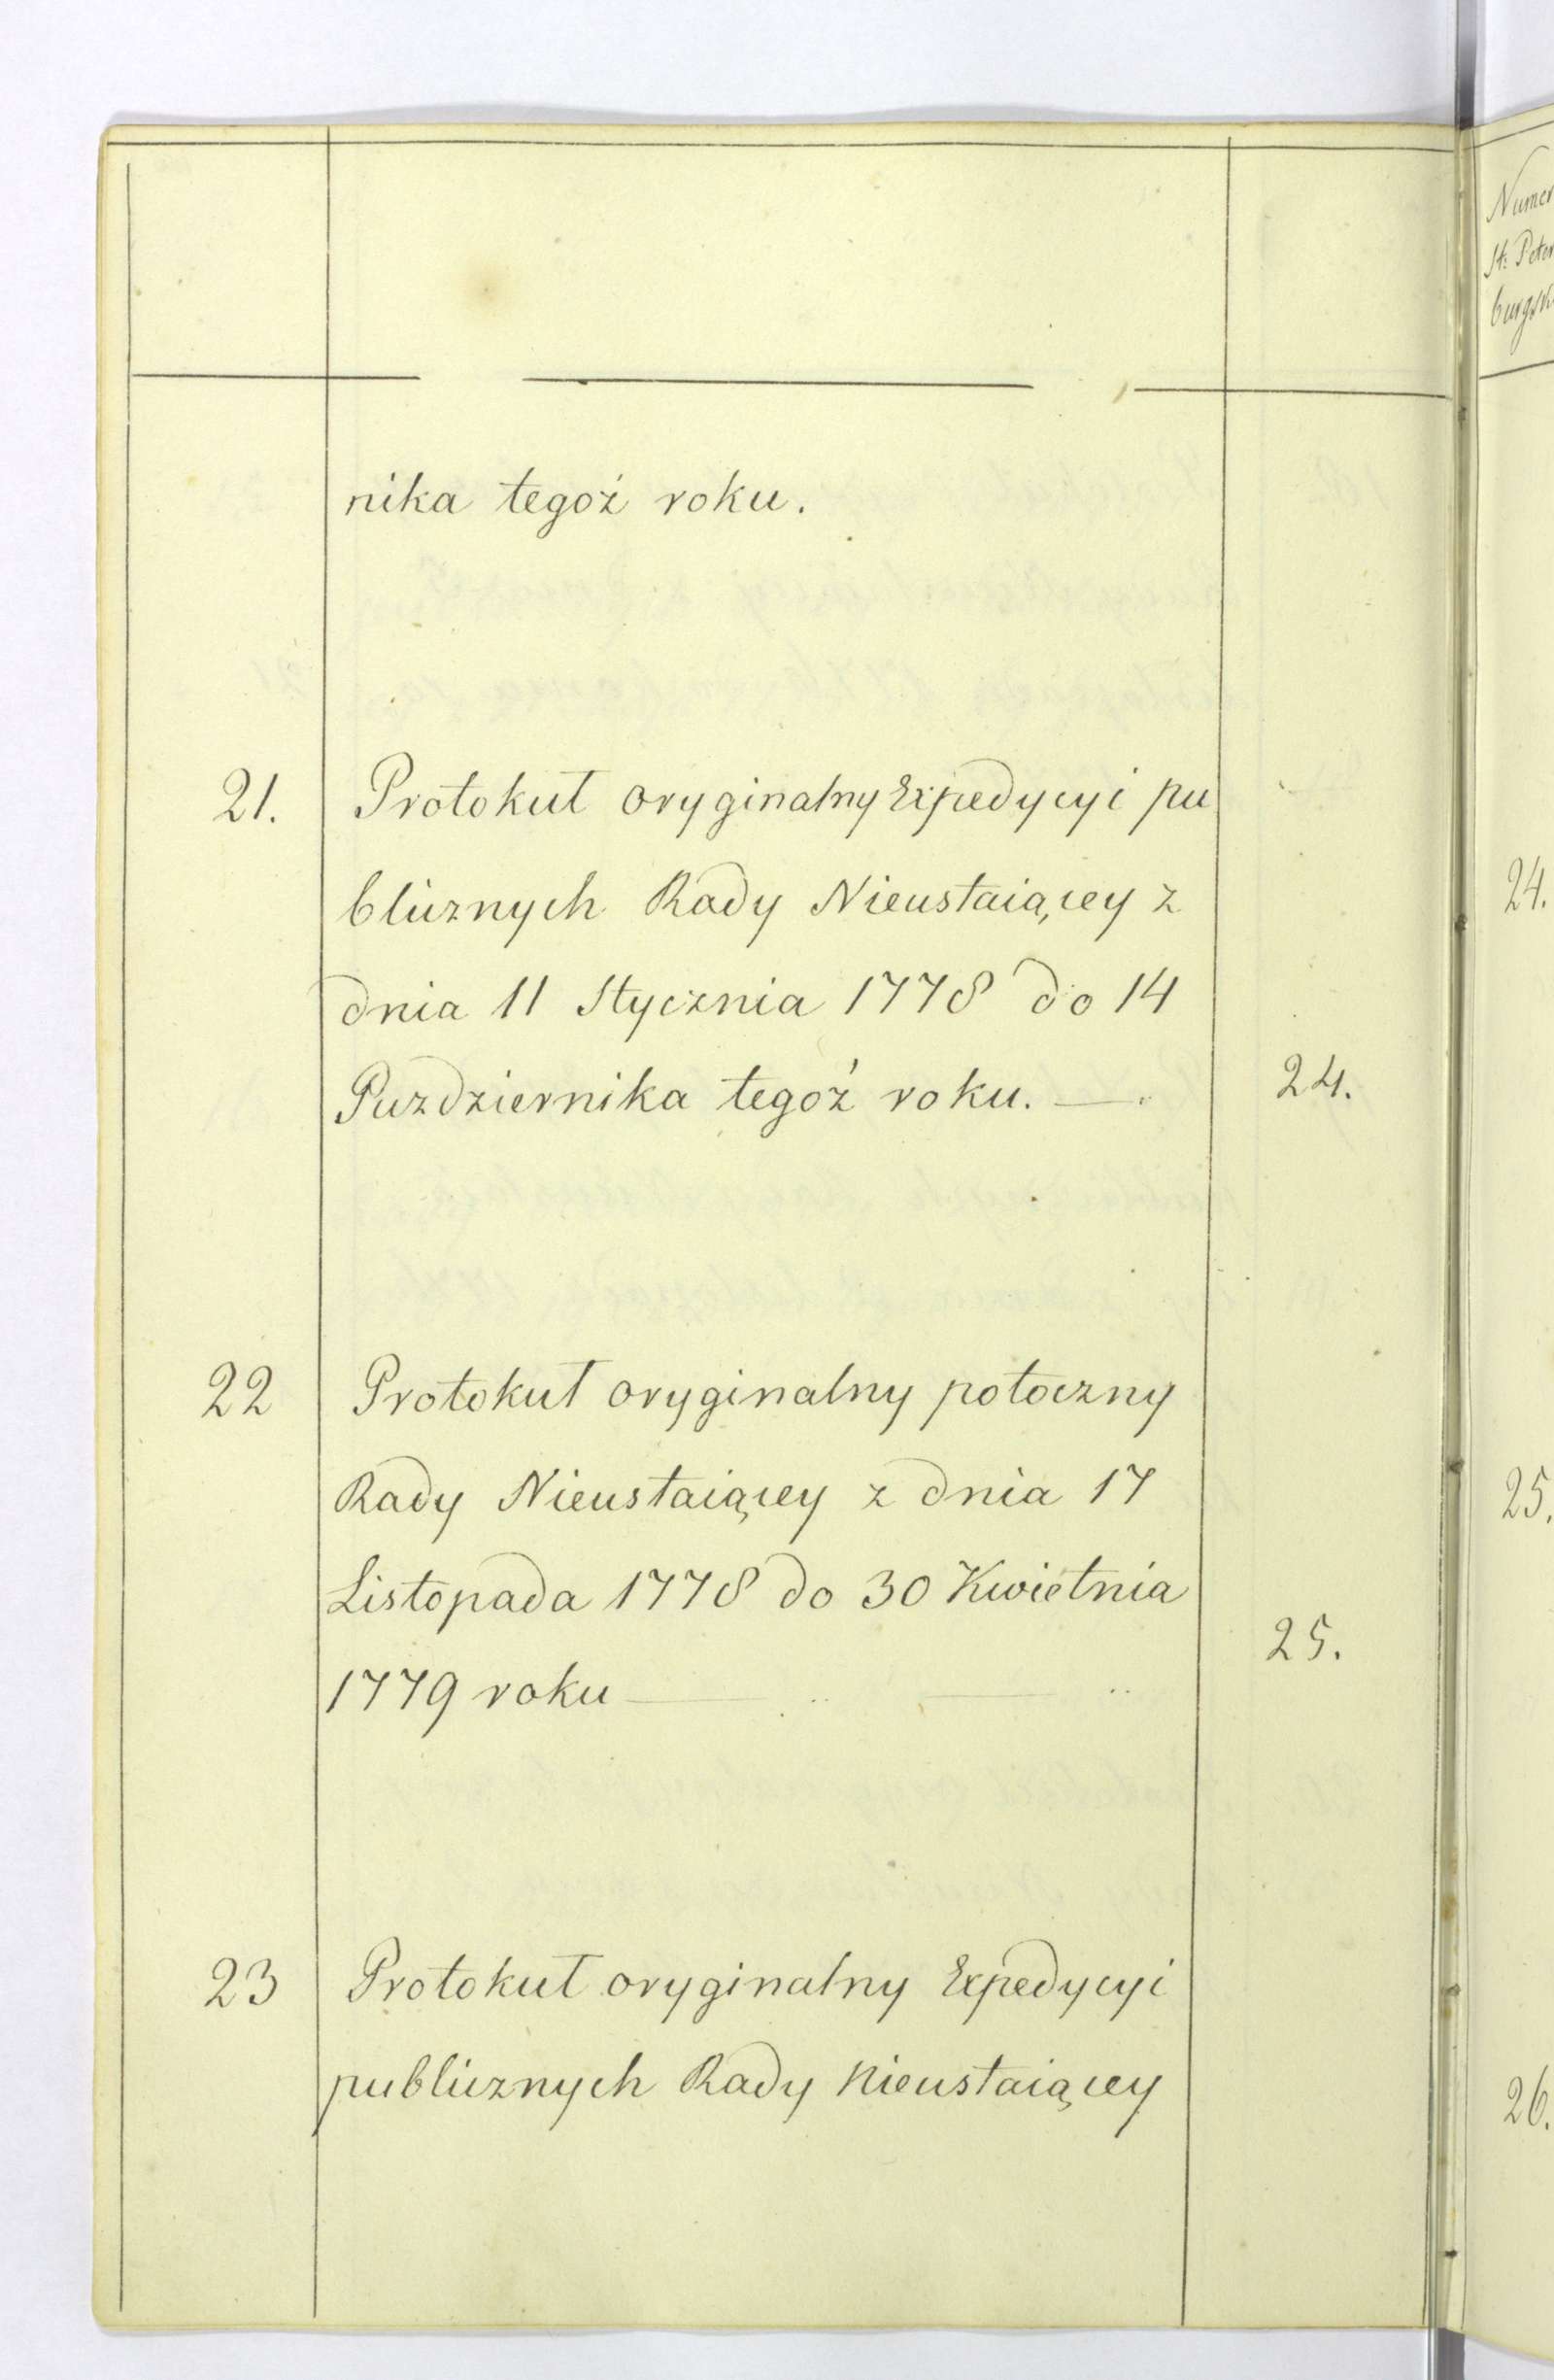 nika tegoż roku.
21. Protokuł oryginalny Expedycyi pu
blicznych Rady Nieustaiącey z
dnia 11 Stycznia 1778 do 14
Puzdziernika tegoż roku. — 24.
22 Protokuł oryginalny potoczny
Rady Nieustaiącey z dnia 17
Listopada 1778 do 30 Kwietnia
25.
1779 roku —
23 Protokuł oryginalny Expedycyi
publicznych Rady Nieustaiącey
Numer
St: Peter
burgsk
24.
25.
26.